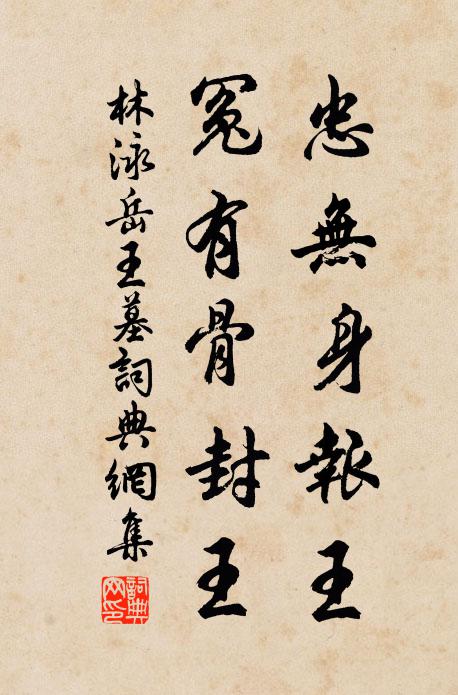 忠無身報王
冤有骨封王
林泳岳王墓詞典網集
詞典网印